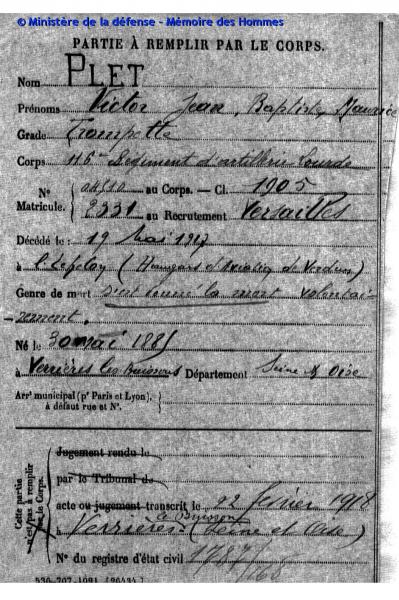 © Ministère de la défense - Mémoire des Hommes
PARTIE À REMPLIR PAR LE CORPS.
Nom PLET
Prénoms Victor Jean, Baptiste, Maurice
Grade Trompette
Corps 116e Régiment d'artillerie Lourde
N° Matricule. { au Corps. — Cl. 1905
2331 au Recrutement Versailles
Décédé le : 19 Mai 1917
à (Hangars d'Aviation de Verdun)
Genre de mort s'est donné la mort volontai-
-rement.
Né le 30 mai 1885
à Verrières les Buissons Département Seine & Oise
Arrt municipal (pr Paris et Lyon),
à défaut rue et N°.
Cette partie n'est pas à remplir par le Corps.
Jugement rendu le
par le Tribunal de
acte ou jugement transcrit le 22 février 1918
à Verrières le Buisson (Seine et Oise)
N° du registre d'état civil 1787/